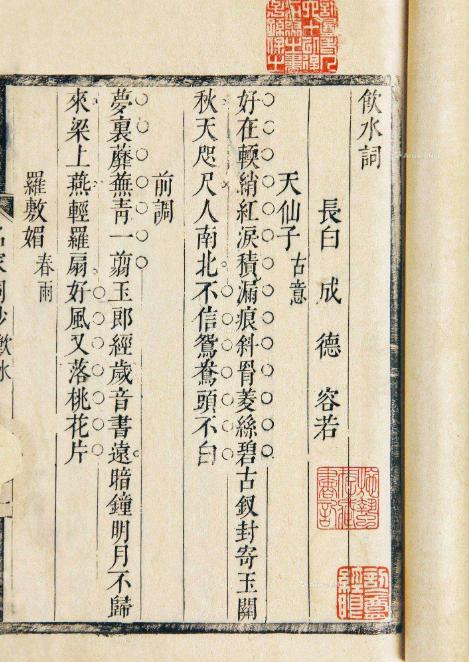 飲水詞
長白 成德 容若
天仙子 古意
好在輭綃紅淚積漏痕斜罥菱絲碧古釵封寄玉關
秋天咫尺人南北不信鴛鴦頭不白
前調
夢裏蘼蕪青一翦玉郎經歲音書遠暗鐘明月不歸
來梁上燕輕羅扇好風又落桃花片
羅敷媚 春雨
名家詞鈔飲水